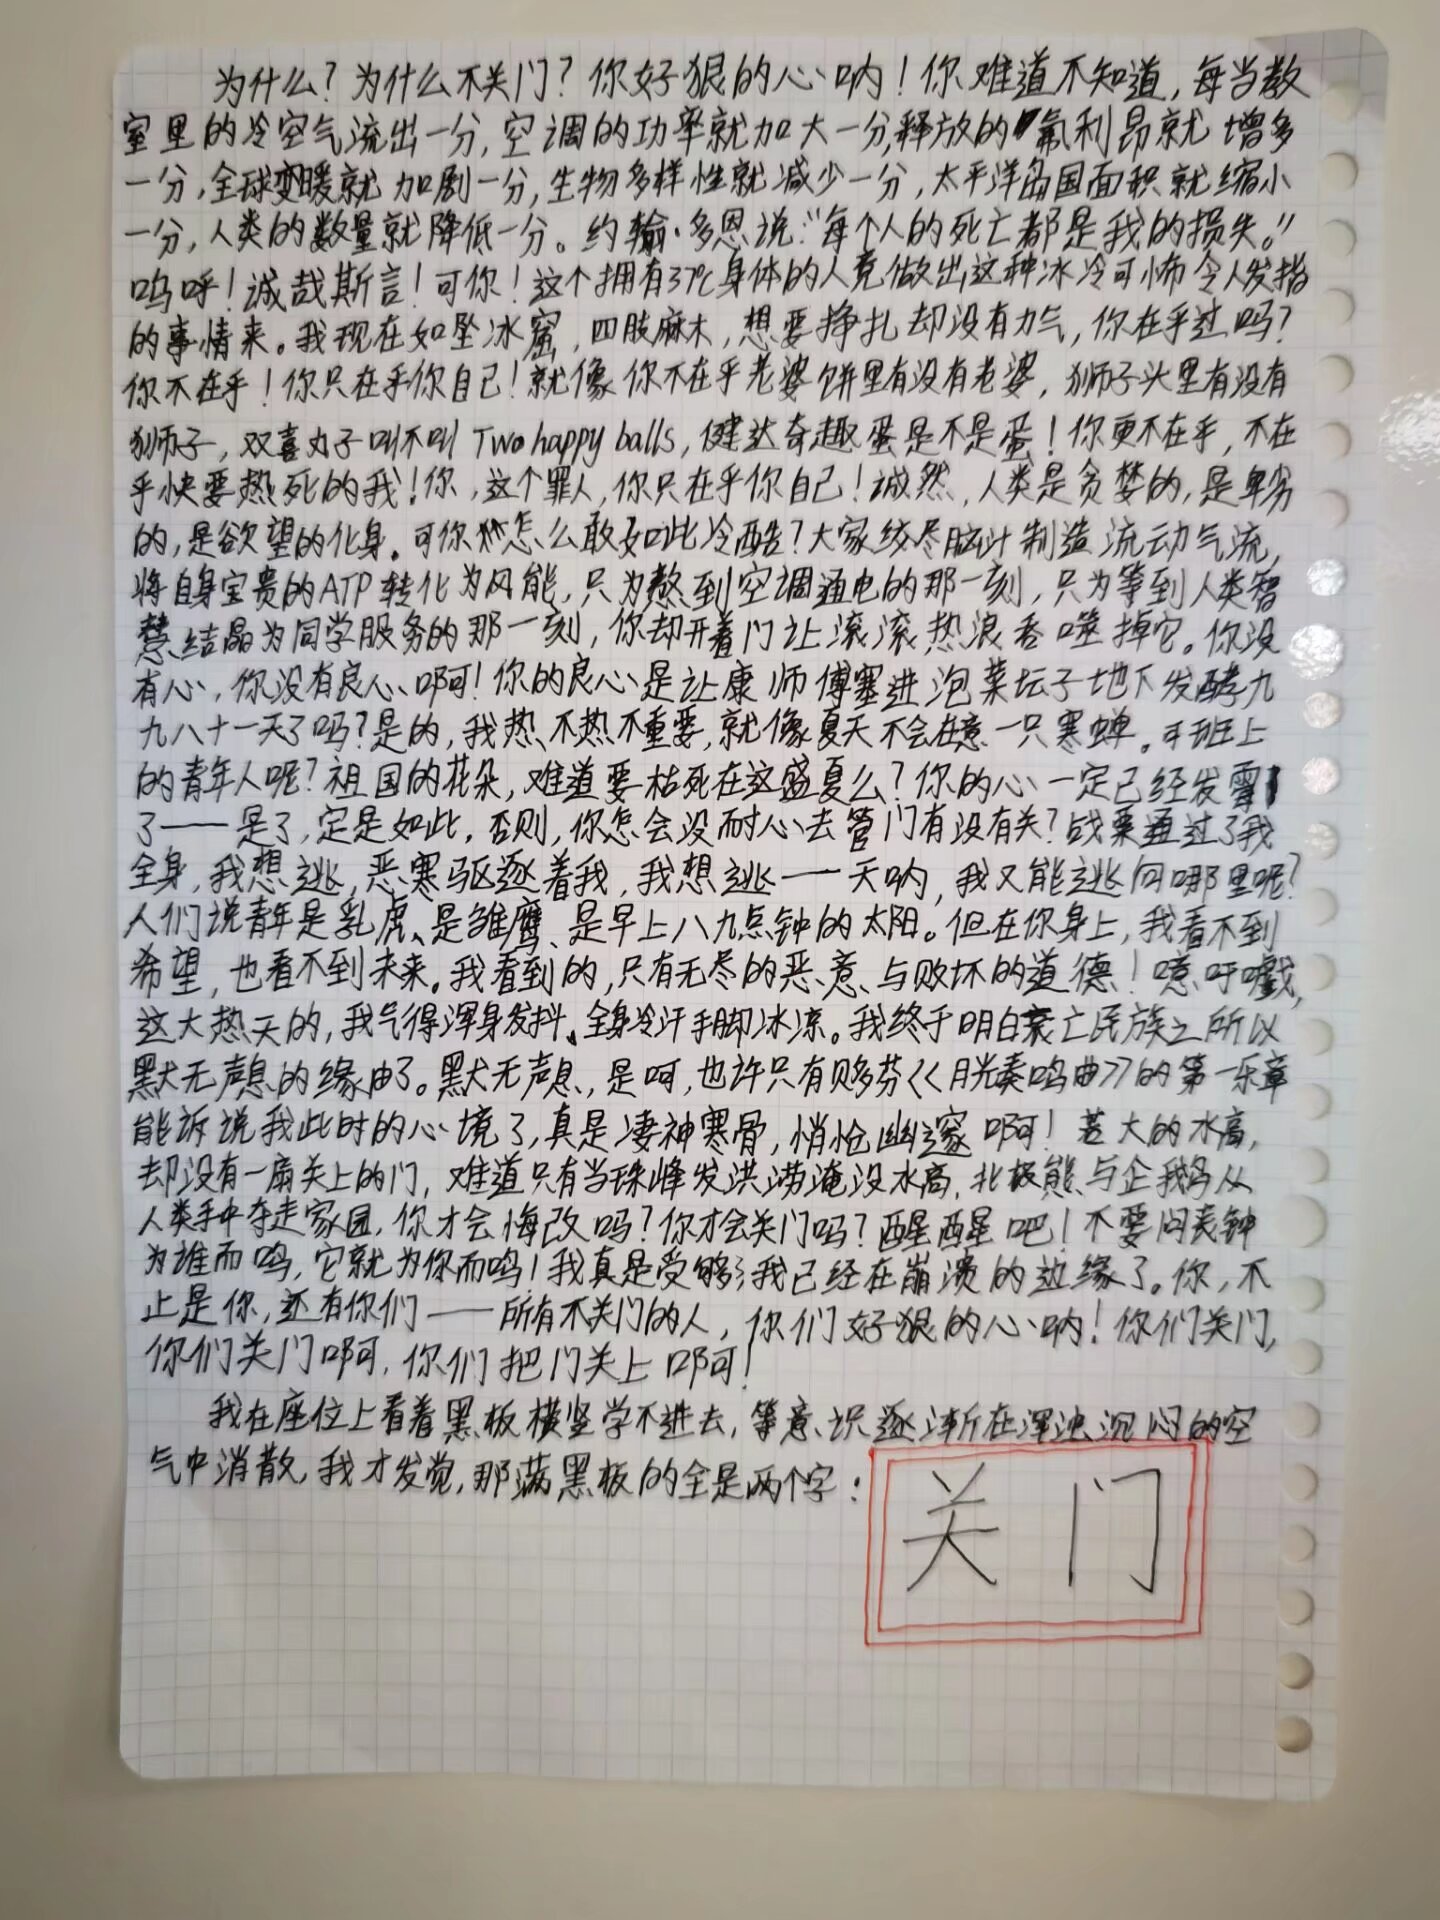 为什么？为什么不关门？你好狠的心呐！你难道不知道，每当教
室里的冷空气流出一分，空调的功率就加大一分，释放的氟利昂就增多
一分，全球变暖就加剧一分，生物多样性就减少一分，太平洋岛国面积就缩小
一分，人类的数量就降低一分。约翰·多恩说：“每个人的死亡都是我的损失。”
呜呼！诚哉斯言！可你！这个拥有37℃身体的人竟做出这种冰冷可怖令人发指
的事情来。我现在如坠冰窟，四肢麻木，想要挣扎却没有力气，你在乎过吗？
你不在乎！你只在乎你自己！就像你不在乎老婆饼里有没有老婆，狮子头里有没有
狮子，双喜丸子叫不叫Two happy balls，健达奇趣蛋是不是蛋！你更不在乎，不在
乎快要热死的我！你，这个罪人，你只在乎你自己！诚然，人类是贪婪的，是卑劣
的，是欲望的化身。可你怎么敢如此冷酷？大家绞尽脑汁制造流动气流，
将自身宝贵的ATP转化为风能，只为熬到空调通电的那一刻，只为等到人类智
慧结晶为同学服务的那一刻，你却开着门让滚滚热浪吞噬掉它。你没
有心，你没有良心啊！你的良心是让康师傅塞进泡菜坛子地下发酵九
九八十一天了吗？是的，我热不热不重要，就像夏天不会在意一只寒蝉。可班上
的青年人呢？祖国的花朵，难道要枯死在这盛夏么？你的心一定已经发霉
了——是了，定是如此，否则，你怎会没耐心去管门有没有关？战栗通过了我
全身，我想逃，恶寒驱逐着我，我想逃——天呐，我又能逃向哪里呢？
人们说青年是乳虎、是雏鹰、是早上八九点钟的太阳。但在你身上，我看不到
希望，也看不到未来。我看到的，只有无尽的恶意与败坏的道德！噫吁嚱，
这大热天的，我气得浑身发抖、全身冷汗手脚冰凉。我终于明白衰亡民族之所以
默无声息的缘由了。默无声息，是呵，也许只有贝多芬《月光奏鸣曲》的第一乐章
能诉说我此时的心境了，真是凄神寒骨，悄怆幽邃啊！若大的水高，
去却没有一扇关上的门，难道只有当珠峰发洪涝淹没水高，北极熊与企鹅从
人类手中夺走家园，你才会悔改吗？你才会关门吗？醒醒吧！不要问丧钟
为谁而鸣，它就为你而鸣！我真是受够了，我已经在崩溃的边缘了。你，不
止是你，还有你们——所有不关门的人，你们好狠的心呐！你们关门，
你们关门啊，你们把门关上啊！
我在座位上看着黑板横竖学不进去，等意识逐渐在浑浊沉闷的空
气中消散，我才发觉，那满黑板的全是两个字：
关门